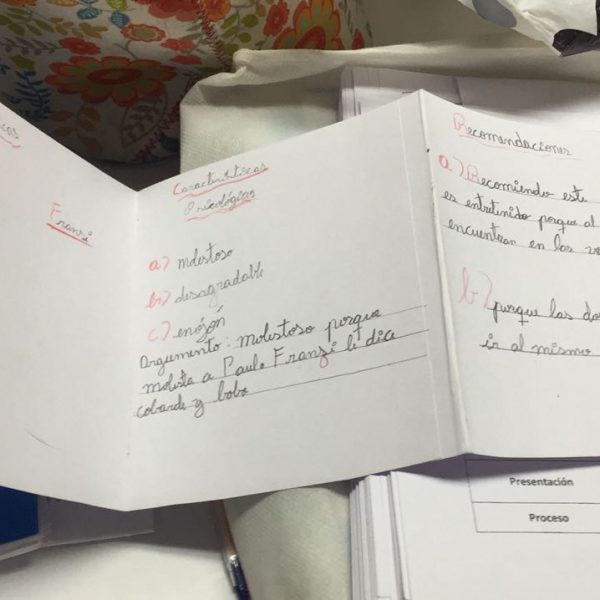 icas
Franzi
Características
Psicológicas
a) molestoso
b) desagradable
c) enojón
Argumento: molestoso porque
molesta a Paulo Franzi le dice
cobarde y bobo
Recomendaciones
a) Recomiendo este
es entretenido porque al
encuentran en las
b) porque las
ir al mismo
Presentación
Proceso